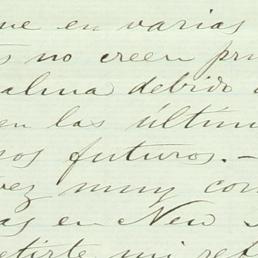 ue en varias
s no creen pru
alma debido a
en las últim
sos futuros.—
vez muy con
as en New
etirte mi ref